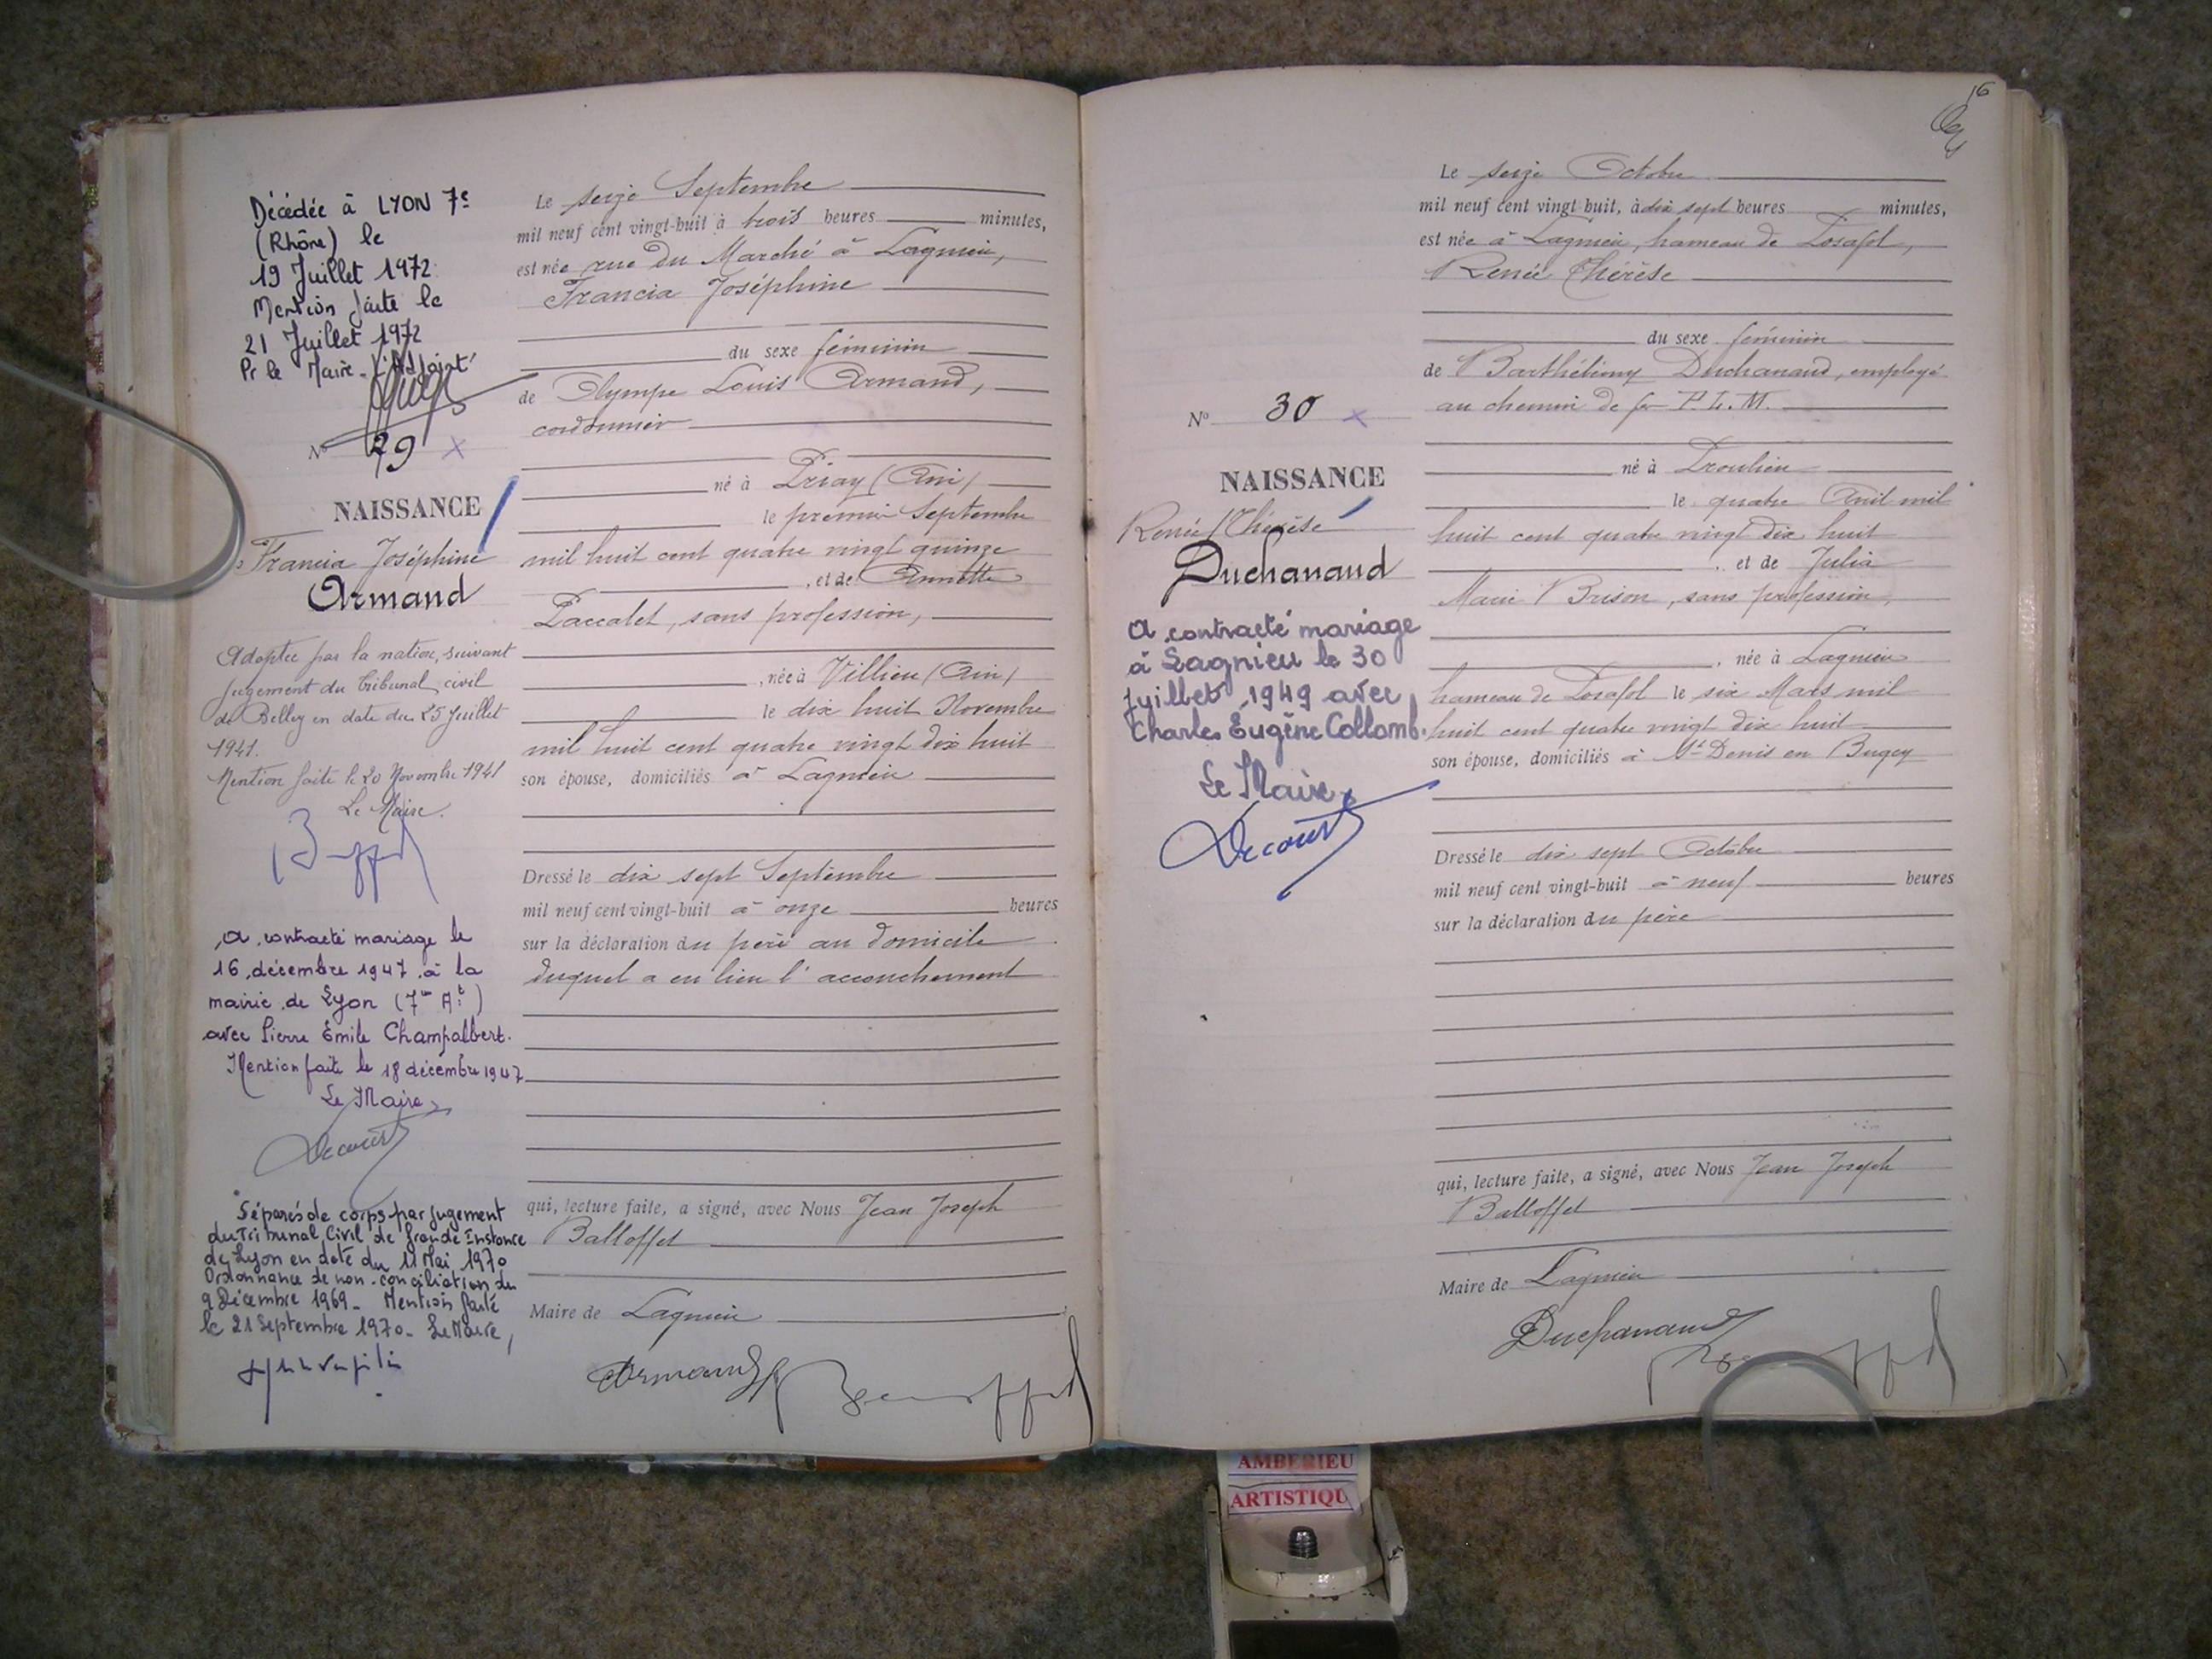 Décédée à LYON 7e
(Rhône) le
19 Juillet 1972
Mention faite le
21 Juillet 1972
Pr le Maire - l'Adjoint
No 29 x
NAISSANCE
Francia Joséphine
Armand
Adoptée par la nation, suivant
jugement du tribunal civil
de Belley en date du 25 Juillet
1941.
Mention faite le 20 Novembre 1941
Le Maire.
a contracté mariage le
16 décembre 1947 à la
mairie de Lyon (7me At)
avec Pierre Émile Champalbert.
Mention faite le 18 décembre 1947
Le Maire,
Decourt
Séparés de corps par jugement
du Tribunal Civil de Grande Instance
de Lyon en date du 11 Mai 1970
Ordonnance de non-conciliation du
9 Décembre 1969 - Mention faite
le 21 Septembre 1970 - Le Maire,
Le seize Septembre
mil neuf cent vingt-huit à trois heures minutes,
est née rue du Marché à Lagnieu,
Francia Joséphine
du sexe féminin
de Olympe Louis Armand,
cordonnier
né à Priay (Ain)
le premier Septembre
mil huit cent quatre vingt quinze
, et de Annette
Paccalet, sans profession,
, née à Villieu (Ain)
le dix huit Novembre
mil huit cent quatre vingt dix huit
son épouse, domiciliés à Lagnieu
Dressé le dix sept Septembre
mil neuf cent vingt-huit à onze heures
sur la déclaration du père au domicile
duquel a eu lieu l'accouchement
qui, lecture faite, a signé, avec Nous Jean Joseph
Balloffet
Maire de Lagnieu
Armand
16
No 30 x
NAISSANCE
Renée Thérèse
Duchanaud
a contracté mariage
à Lagnieu le 30
Juillet 1949 avec
Charles Eugène Collomb.
Le Maire,
Decourt
Le seize Octobre
mil neuf cent vingt-huit, à dix sept heures minutes,
est née à Lagnieu, hameau de Posafol,
Renée Thérèse
du sexe féminin
de Barthélémy Duchanaud, employé
au chemin de fer P. L. M.
né à
le quatre Avril mil
huit cent quatre vingt dix huit
, et de Julia
Marie Brison, sans profession,
, née à Lagnieu
hameau de Posafol le six Mars mil
huit cent quatre vingt dix huit
son épouse, domiciliés à St Denis en Bugey
Dressé le dix sept Octobre
mil neuf cent vingt-huit à neuf heures
sur la déclaration du père
qui, lecture faite, a signé, avec Nous Jean Joseph
Balloffet
Maire de Lagnieu
Duchanaud
AMBERIEU
ARTISTIQU